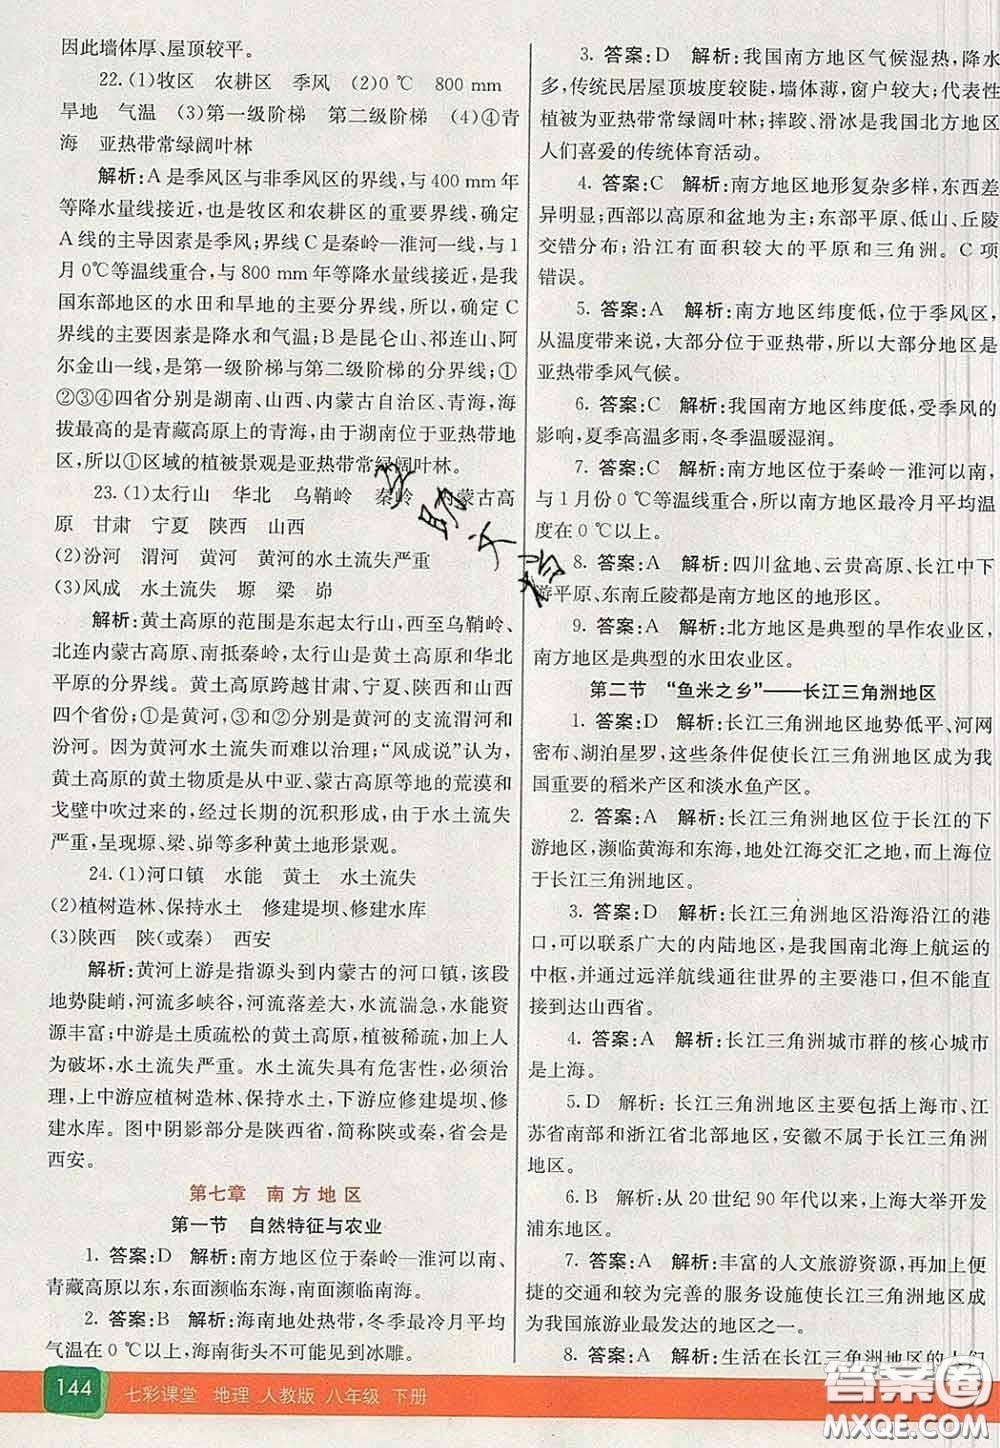 因此墙体厚、屋顶较平。
22.(1)牧区 农耕区 季风 (2)0 ℃ 800 mm
旱地 气温 (3)第一级阶梯 第二级阶梯 (4)④青
海 亚热带常绿阔叶林
解析:A是季风区与非季风区的界线,与400 mm年
等降水量线接近,也是牧区和农耕区的重要界线,确定
A线的主导因素是季风;界线C是秦岭—淮河一线,与1
月0℃等温线重合,与800 mm年等降水量线接近,是我
国东部地区的水田和旱地的主要分界线,所以,确定C
界线的主要因素是降水和气温;B是昆仑山、祁连山、阿
尔金山一线,是第一级阶梯与第二级阶梯的分界线;①
②③④四省分别是湖南、山西、内蒙古自治区、青海,海
拔最高的是青藏高原上的青海,由于湖南位于亚热带地
区,所以①区域的植被景观是亚热带常绿阔叶林。
23.(1)太行山 华北 乌鞘岭 秦岭 内蒙古高
原 甘肃 宁夏 陕西 山西
(2)汾河 渭河 黄河 黄河的水土流失严重
(3)风成 水土流失 塬 梁 峁
解析:黄土高原的范围是东起太行山,西至乌鞘岭、
北连内蒙古高原、南抵秦岭,太行山是黄土高原和华北
平原的分界线。黄土高原跨越甘肃、宁夏、陕西和山西
四个省份;①是黄河,②和③分别是黄河的支流渭河和
汾河。因为黄河水土流失而难以治理;“风成说”认为,
黄土高原的黄土物质是从中亚、蒙古高原等地的荒漠和
戈壁中吹过来的,经过长期的沉积形成,由于水土流失
严重,呈现塬、梁、峁等多种黄土地形景观。
24.(1)河口镇 水能 黄土 水土流失
(2)植树造林、保持水土 修建堤坝、修建水库
(3)陕西 陕(或秦) 西安
解析:黄河上游是指源头到内蒙古的河口镇,该段
地势陡峭,河流多峡谷,河流落差大,水流湍急,水能资
源丰富;中游是土质疏松的黄土高原,植被稀疏,加上人
为破坏,水土流失严重。图示的是黄河的凌汛,必须治
理,上中游应植树造林、保持水土,下游应修建堤坝、修
建水库。图中阴影部分是陕西省,简称陕或秦,省会是
西安。
第七章 南方地区
第一节 自然特征与农业
1. 答案:D 解析:南方地区位于秦岭—淮河以南、
青藏高原以东,东面濒临东海,南面濒临南海。
2. 答案:B 解析:海南地处热带,冬季最冷月平均
气温在0 ℃以上,海南街头不可能见到冰雕。
3. 答案:D 解析:我国南方地区气候湿热,降水
多,传统民居屋顶坡度较陡,墙体薄,窗户较大;代表性
植被为亚热带常绿阔叶林;摔跤、滑冰是我国北方地区
人们喜爱的传统体育活动。
4. 答案:C 解析:南方地区地形复杂多样,东西差
异明显;西部以高原和盆地为主;东部平原、低山、丘陵
交错分布;沿江有面积较大的平原和三角洲。C项
错误。
5. 答案:A 解析:南方地区纬度低,位于季风区,
从温度带来说,大部分位于亚热带,所以大部分地区是
亚热带季风气候。
6. 答案:C 解析:我国南方地区纬度低,受季风的
影响,夏季高温多雨,冬季温暖湿润。
7. 答案:C 解析:南方地区位于秦岭—淮河以南,
与1月份0 ℃等温线重合,所以南方地区最冷月平均温
度在0 ℃以上。
8. 答案:A 解析:四川盆地、云贵高原、长江中下
游平原、东南丘陵都是南方地区的地形区。
9. 答案:A 解析:北方地区是典型的旱作农业区,
南方地区是典型的水田农业区。
第二节 “鱼米之乡”——长江三角洲地区
1. 答案:D 解析:长江三角洲地区地势低平、河网
密布、湖泊星罗,这些条件促使长江三角洲地区成为我
国重要的稻米产区和淡水鱼产区。
2. 答案:A 解析:长江三角洲地区位于长江的下
游地区,濒临黄海和东海,地处江海交汇之地,而南昌不
位于长江三角洲地区。
3. 答案:D 解析:长江三角洲地区沿海沿江的港
口,可以联系广大的内陆地区,是我国南北海上航运的
中枢,并通过远洋航线通往世界的主要港口,但不能直
接到达山西省。
4. 答案:A 解析:长江三角洲城市群的核心城市
是上海。
5. D 解析:长江三角洲地区主要包括上海市、江
苏省南部和浙江省北部地区,安徽不属于长江三角洲
地区。
6. B 解析:从20世纪90年代以来,上海大举开发
浦东新区。
7. 答案:A 解析:丰富的人文旅游资源,再加上便
捷的交通和较为完善的服务设施使长江三角洲地区成
为我国旅游业最发达的地区之一。
8. 答案:A 解析:生活在长江三角洲地区的人们
144 七彩课堂 地理 人教版 八年级 下册
答案圈
MXQE.COM